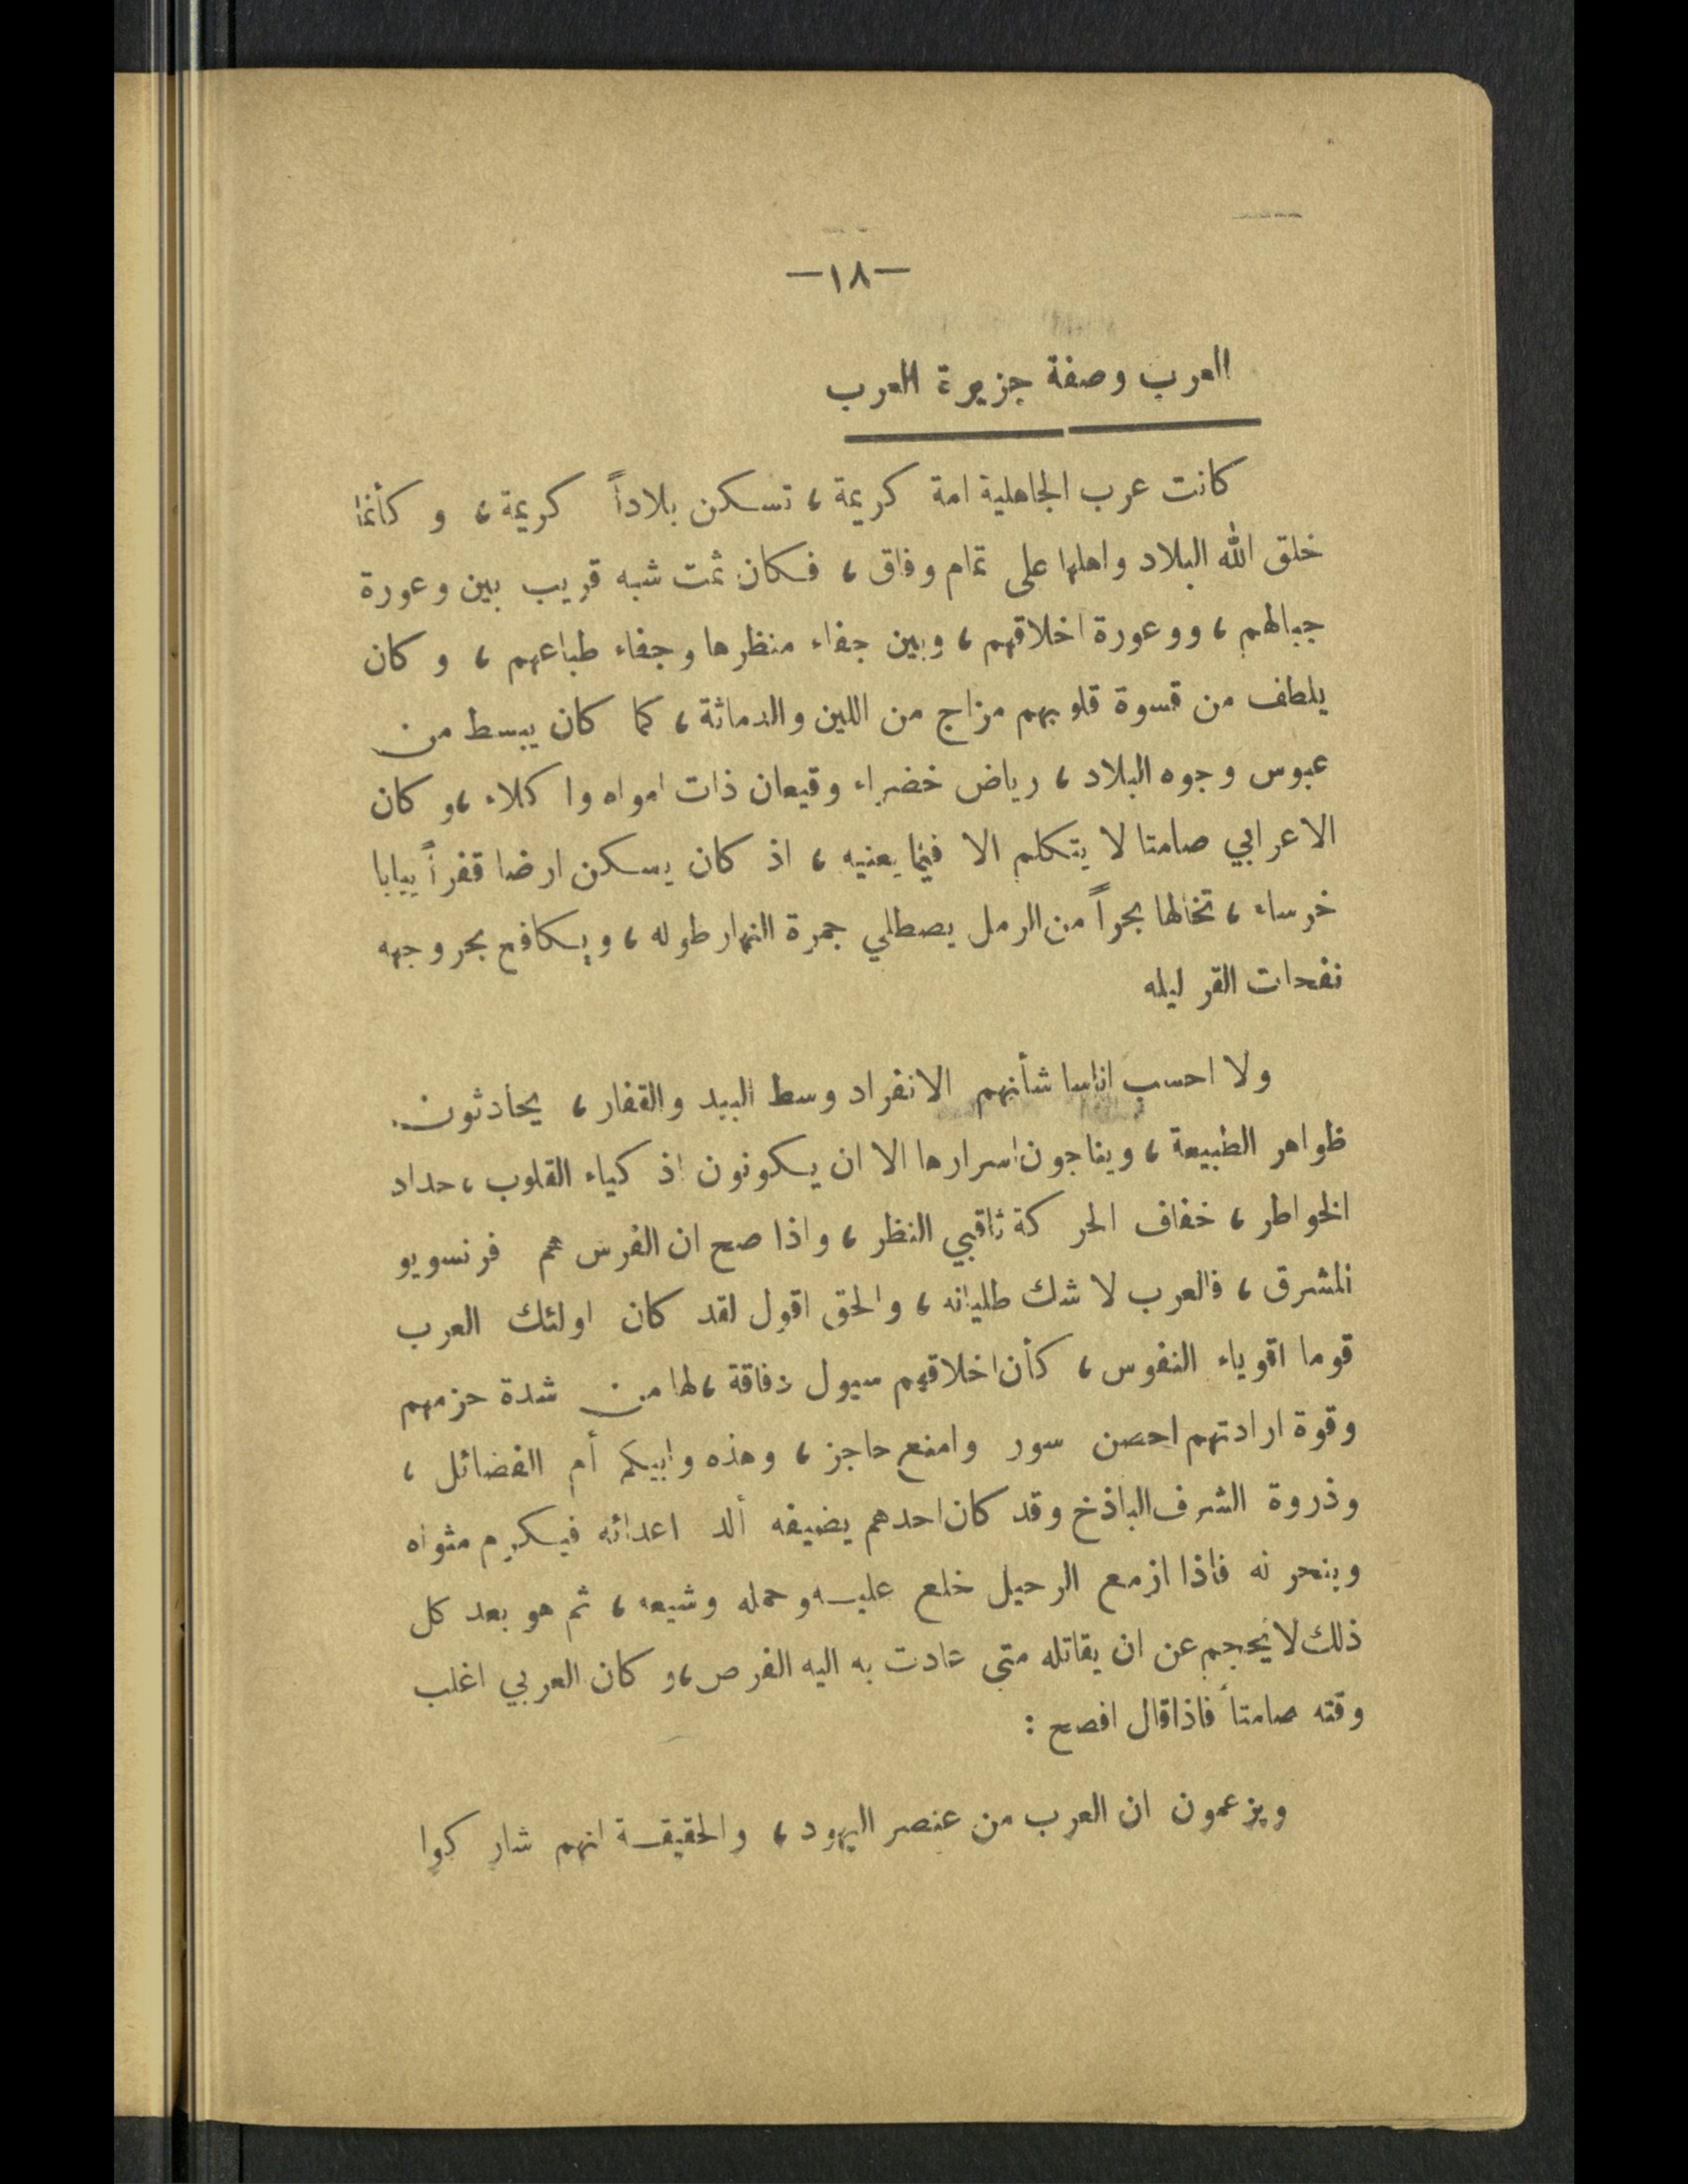 —١٨—
العرب وصفة جزيرة العرب
كانت عرب الجاهلية امة كريمة ، تسكن بلاداً كريمة ، و كأنما
خلق الله البلاد واهلها على تمام وفاق ، فكان ثمت شبه قريب بين وعورة
جبالهم ، ووعورة اخلاقهم ، وبين جفاء منظرها وجفاء طباعهم ، و كان
يلطف من قسوة قلوبهم مزاج من اللين والدماثة ، كما كان يبسط من
عبوس وجوه البلاد ، رياض خضراء وقيعان ذات امواه وا كلاء ،و كان
الاعرابي صامتا لا يتكلم الا فيما يعنيه ، اذ كان يسكن ارضا قفراً يبابا
خرساء ، تخالها بحراً من الرمل يصطلي جمرة النهار طوله ، ويكافح بحر وجهه
نفحات القر ليله
ولا احسب اناسا شأنهم الانفراد وسط البيد والقفار ، يحادثون
ظواهر الطبيعة ، ويناجون اسرارها الا ان يكونون اذ كياء القلوب ، حداد
الخواطر ، خفاف الحر كة ثاقبي النظر ، واذا صح ان الفرس هم فرنسويو
المشرق ، فالعرب لا شك طليانه ، والحق اقول لقد كان اولئك العرب
قوما اقوياء النفوس ، كأن اخلاقهم سيول دفاقة ، لها من شدة حزمهم
وقوة ارادتهم احصن سور وامنع حاجز ، وهذه وابيكم أم الفضائل ،
وذروة الشرف الباذخ وقد كان احدهم يضيفه ألد اعدائه فيكرم مثواه
وينحر نه فاذا ازمع الرحيل خلع عليه وحمله وشيعه ، ثم هو بعد كل
ذلك لا يحجم عن ان يقاتله متى عادت به اليه الفرص ،و كان العربي اغلب
وقته صامتاً فاذا قال افصح :
ويزعمون ان العرب من عنصر اليهود ، والحقيقة انهم شار كوا